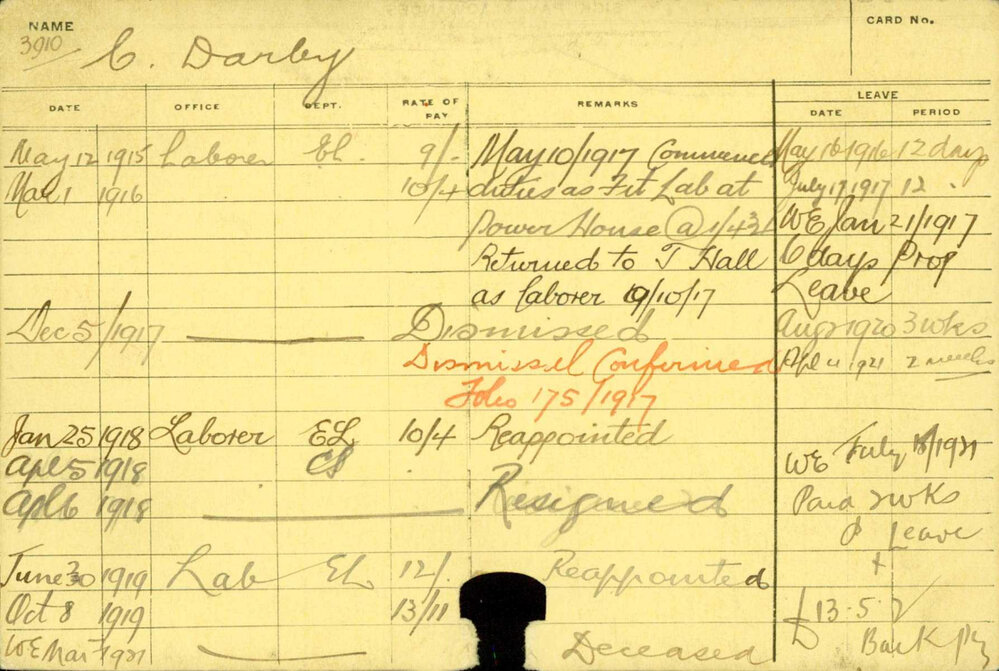 NAME
CARD No.
3910
C. Darby
DATE OFFICE DEPT. RATE OF PAY REMARKS LEAVE
DATE PERIOD
May 12 1915 Laborer El. 9/- May 10/1917 Commenced May 10 1916 12 days
Mar 1 1916 10/4 duties as Fit Lab at July 17 1917 12
Power House @ WE Jan 21/1917
Returned to T Hall 6 days Prop
as laborer 19/10/17 Leave
Dec 5/1917 Dismissed 1920 3 wks
Dismissel Confirmed Apl 4 1921 2 weeks
Folio 175/1917
Jan 25 1918 Laborer EL 10/4 Reappointed
Apl 5 1918 WE July 1921
Apl 6 1918 Resigned Paid 2 wks
Leave
+
June 30 1919 Lab EL 12/. Reappointed
Oct 8 1919 13/11 £13-5-7
WE Mar 1921 Deceased Back Pay